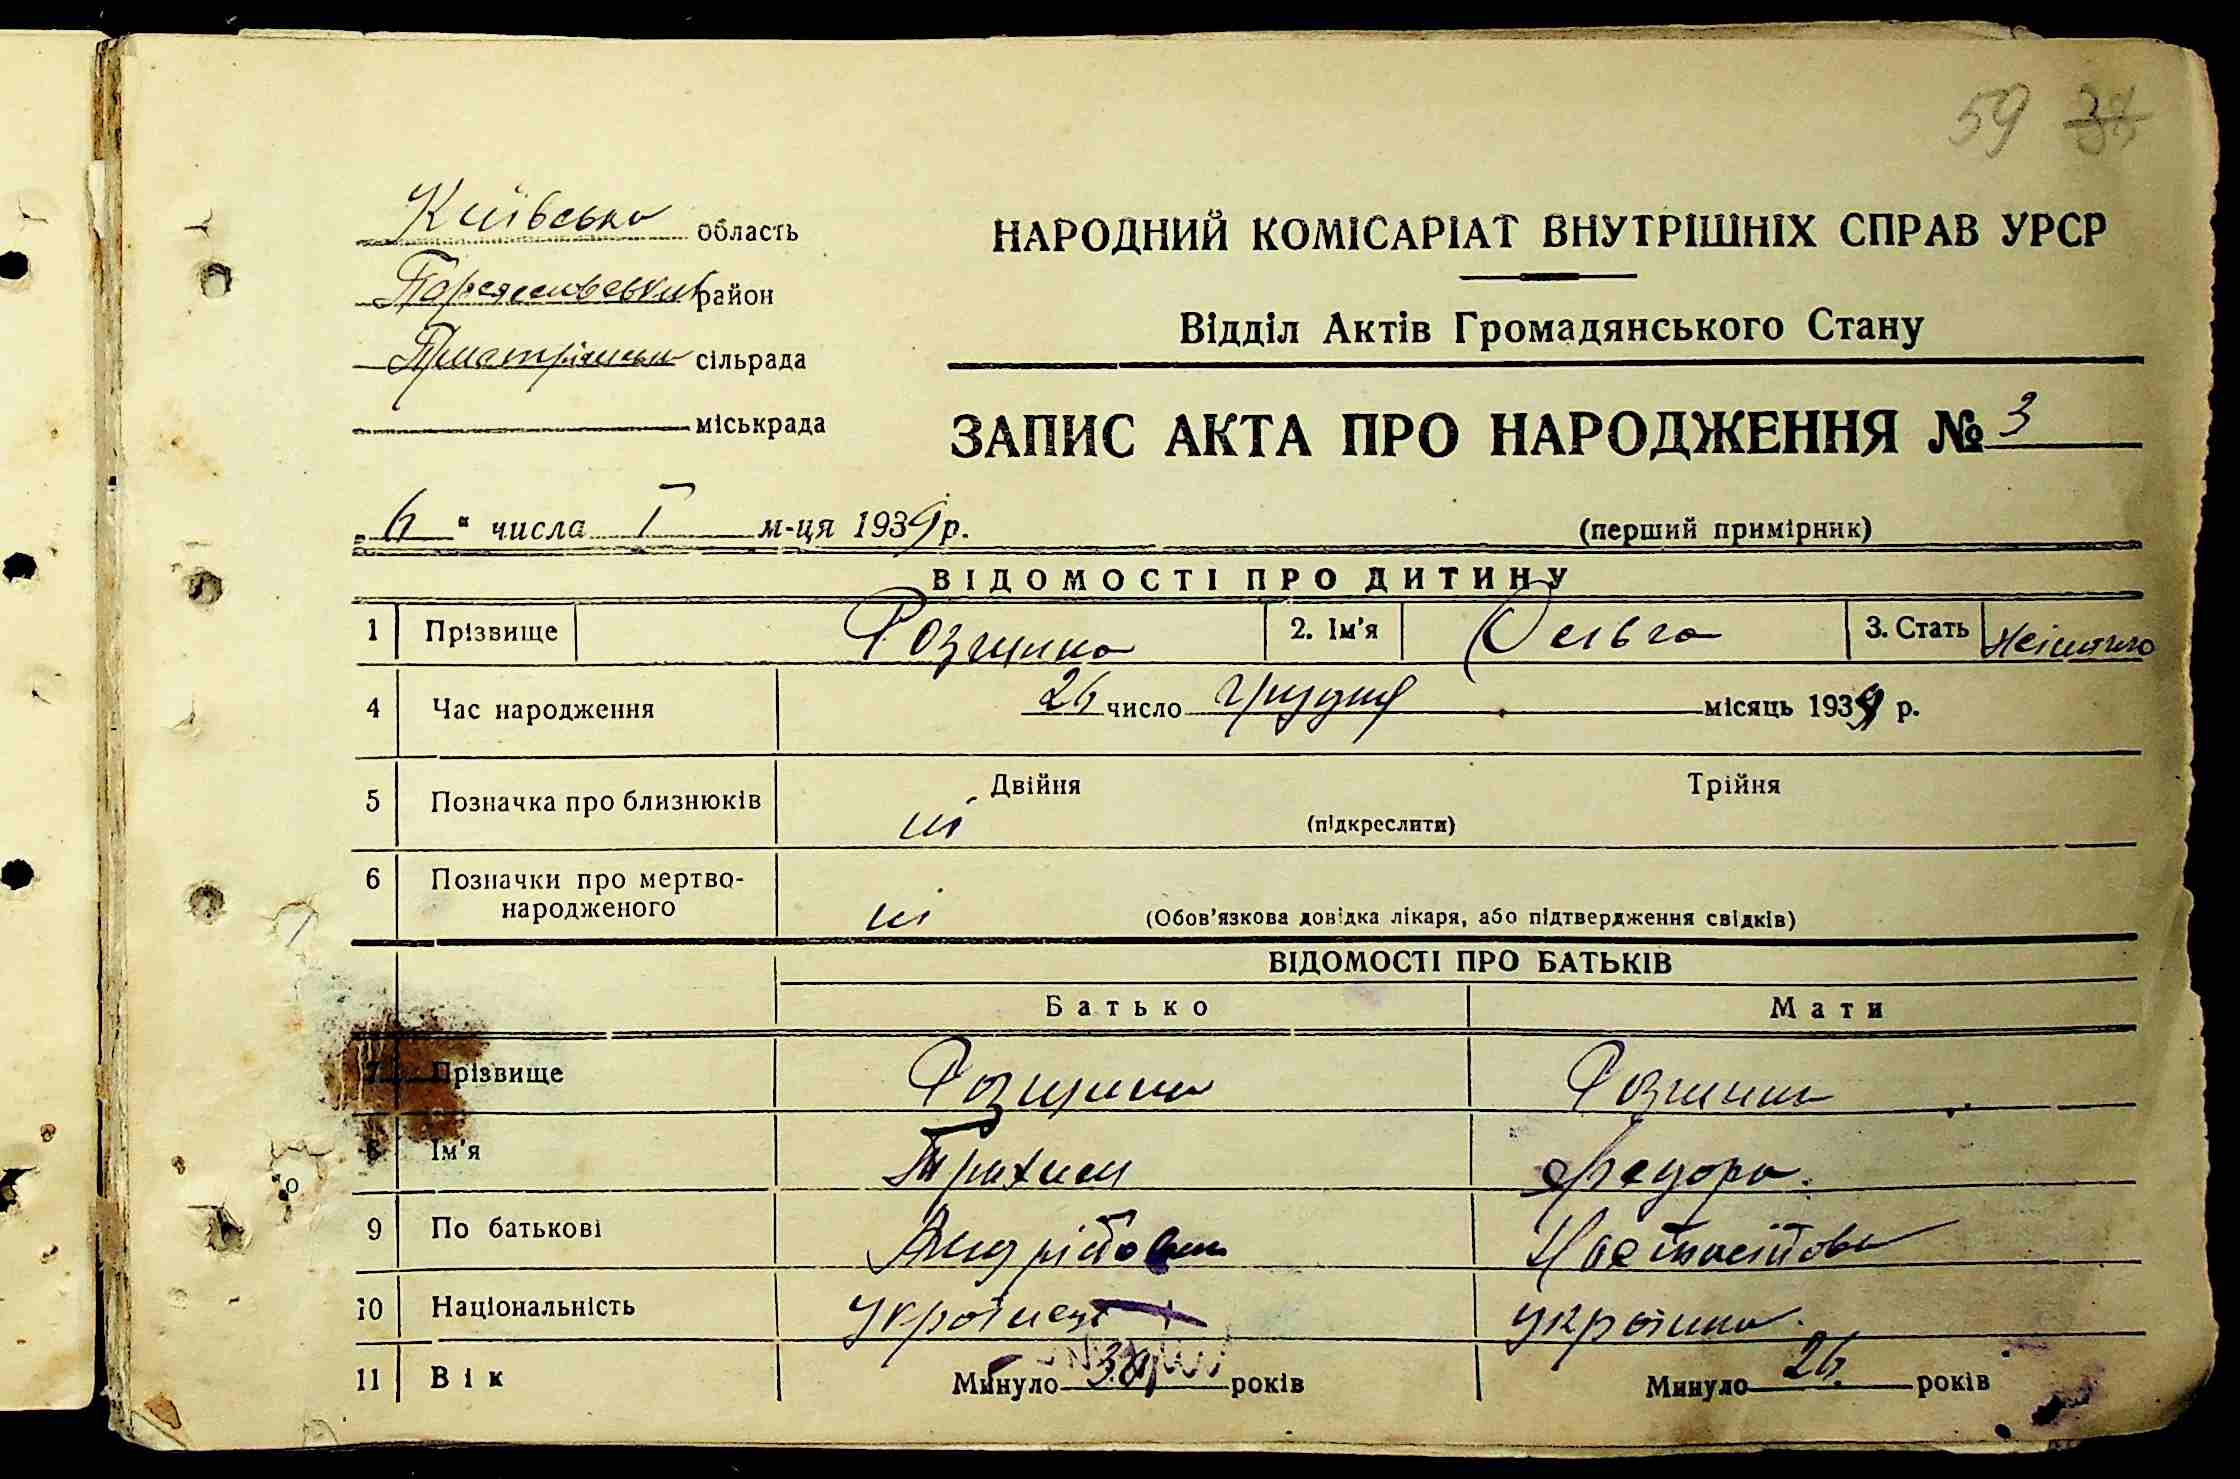 59 38
Київська область
Переяславський район
сільрада
міськрада
НАРОДНИЙ КОМІСАРІАТ ВНУТРІШНІХ СПРАВ УРСР
Відділ Актів Громадянського Стану
ЗАПИС АКТА ПРО НАРОДЖЕННЯ № 3
„6“ числа I м-ця 1939 р.
(перший примірник)
ВІДОМОСТІ ПРО ДИТИНУ
1 Прізвище Розгина 2. Ім'я Ольга 3. Стать жіноча
4 Час народження 26 число грудня місяць 1939 р.
5 Позначка про близнюків ні Двійня Трійня
(підкреслити)
6 Позначки про мертво-
народженого ні (Обов'язкова довідка лікаря, або підтвердження свідків)
ВІДОМОСТІ ПРО БАТЬКІВ
Батько Мати
7 Прізвище Розгина Розгина
8 Ім'я Трахим Федора
9 По батькові Андрійович
10 Національність Українець українка
11 Вік Минуло років Минуло 26 років